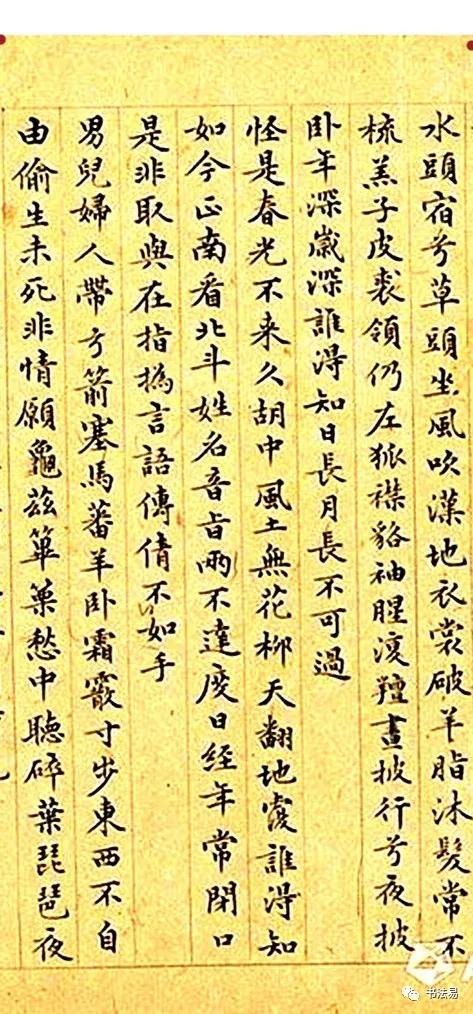 水頭宿兮草頭坐風吹漢地衣裳破羊脂沐髮常不
梳羔子皮裘領仍左狐襟貉袖腥復羶晝披行兮夜披
卧年深歲深誰得知日長月長不可過
怪是春光不来久胡中風土無花柳天翻地覆誰得知
如今正南看北斗姓名音旨兩不達度日経年常閉口
是非取與在指撝言語傳情不如手
男兒婦人帶弓箭塞馬蕃羊卧霜霰寸步東西不自
由偷生未死非情願龜茲篳篥愁中聽碎葉琵琶夜
书法易